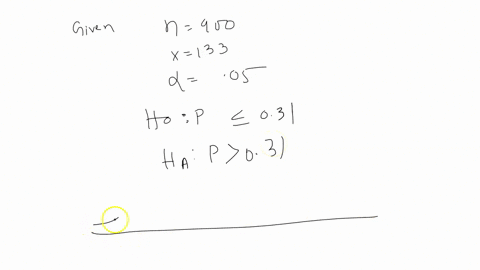 Given n = 900
x = 133
α = .05
Ho : P ≤ 0.31
HA : P > 0.31